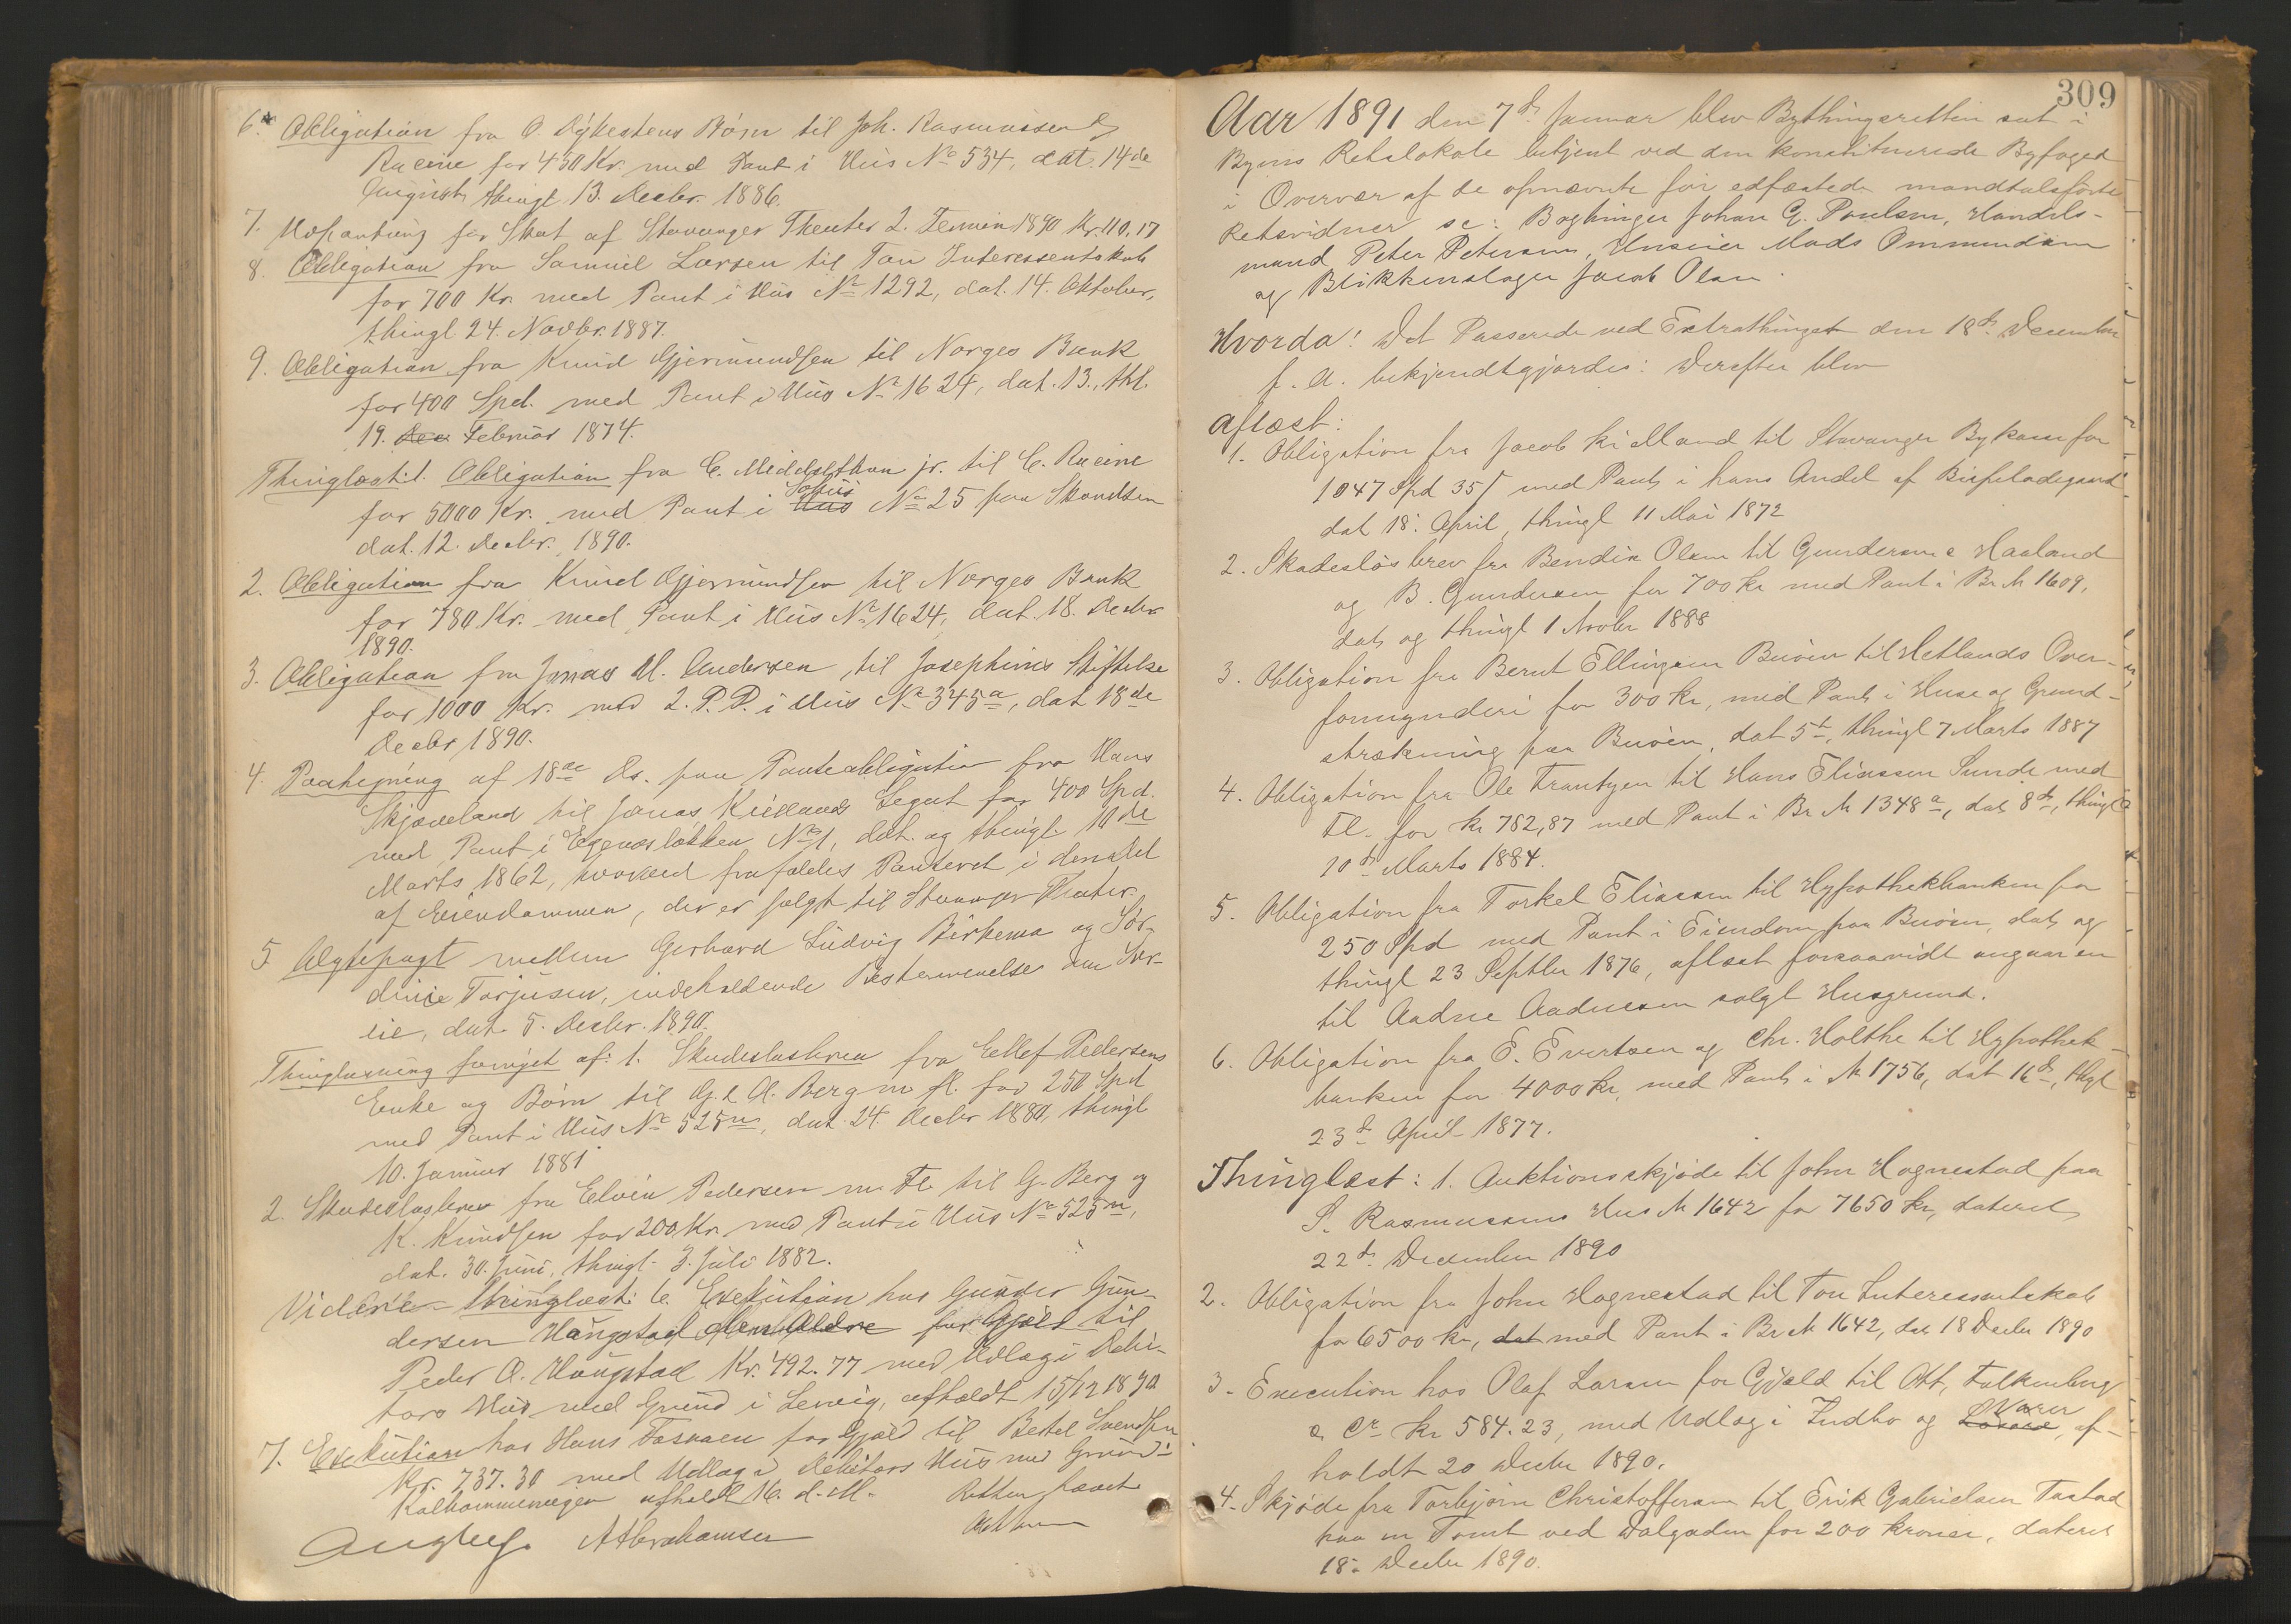 6. Obligation fra O. Dybestens Børn til Joh. Rasmussen &
Racine for 450 Kr. med Pant i Hus No 534, dat. 14de
August, thingl. 13. Decbr. 1886.
7. Udpantning for Skat af Stavanger Theater 2. Termin 1890 Kr. 110.17
8. Obligation fra Samuel Larsen til Tou Interessentskab
for 700 Kr. med Pant i Hus No 1292, dat. 14. Oktober,
thingl. 24. Novbr. 1887.
9. Obligation fra Knud Gjermundsen til Norges Bank
for 400 Spd. med Pant i Hus No 1624, dat. 13., thl.
19. Dec Februar 1874.
Thinglæst: 1. Obligation fra C. Middelthon jr. til C. Racine
for 5000 Kr. med Pant i Hus Søhus No 25 paa Skandsen
dat. 12. Decbr. 1890.
2. Obligation fra Knud Gjermundsen til Norges Bank
for 780 Kr. med Pant i Hus No 1624, dat. 18. Decbr
1890.
3. Obligation fra Jonas M. Andersen til Josephines Stiftelse
for 1000 Kr. med 2. P. P. i Hus No 345a, dat 18de
Decbr 1890.
4. Paategning af 18de ds. paa Panteobligation fra Hans
Skjæveland til Jonas Kiellands Legat for 400 Spd.
med Pant i Egenesløkken No 1, dat. og thingl. 10de
Marts 1862, hvorved frafaldes Panteret i den Del
af Eiendommen, der er solgt til Stavanger Theater.
5 Ægtepagt mellem Gerhard Ludvig Birkema og Sør-
dinie Torjusen, indeholdende Bestemmelse om Sær-
eie, dat. 5. Decbr. 1890.
Thinglæsning fornyet af: 1. Skadesløsbrev fra Ellef Pedersens
Enke og Børn til G. & A. Berg m. fl. for 250 Spd
med Pant i Hus No 525m, dat. 24. Decbr 1880, thingl
10. Januar 1881
2. Skadesløsbrev fra Elvin Pedersen m Fl. til G. Berg og
K. Knudsen for 200 Kr. med Pant i Hus No 525m,
dat. 30. Juni, thingl. 3. Juli 1882.
Videre Thinglæst: 6. Exekution hos Gunder Gun-
dersen Haugstad den Ældre for Gjæld til
Peder A. Haugstad Kr. 492.77 med Udlæg i Debi-
tors Hus med Grund i Lervig, afholdt 15/12 1890
7. Exekution hos Hans Fosvaen for Gjæld til Betel Svendsen
Kr. 737.30 med Udlæg i Debitors Hus med Grund i
Kalhammervigen afholdt 16. d. M. Retten hævet
Abrahamsen
309
Aar 1891 den 7de Januar blev Bythingsretten sat i
Byens Retslokale betjent ved den konstituerede Byfoged
i Overvær af de opnævnte før edfæstede mandtalsførte
Retsvidner sc: Bogbinder Johan G. Poulsen, Handels-
mand Peter Petersen, Huseier Mads Ommundsen
og Blikkenslager Jacob Olsen.
Hvorda: Det Passerede ved Extrathinget den 18de December
f. A. bekjendtgjordes: Derefter blev
aflæst:
1. Obligation fra Jacob Kielland til Stavanger Bykasse for
1047 Spd 35 s med Pant i hans Andel af Bispeladegaard
dat 18. April, thingl 11 Mai 1872
2. Skadesløsbrev fra Bendix Olsen til Gundersen & Haaland
og B. Gundersen for 700 Kr med Pant i Br. No 1609,
dat og thingl 1 Novbr 1888
3. Obligation fra Bernt Ellingsen Buøen til Hetlands Over-
formynderi for 300 Kr, med Pant i Huse og Grund-
strækning paa Buøen, dat 5te, thingl 7 Marts 1887
4. Obligation fra Ole Frantzen til Hans Eliassen Sunde med
Fl. for Kr 782,87 med Pant i Br No 1348a, dat 8de, thingl
10de Marts 1884.
5. Obligation fra Torkel Eliassen til Hypothekbanken for
250 Spd med Pant i Eiendom paa Buøen, dat og
thingl 23 Septbr 1876, aflæst forsaavidt angaar en
til Aadne Aadnesen solgt Husgrund.
6. Obligation fra E. Evertsen og Chr. Holthe til Hypothek-
banken for 4000 Kr, med Pant i No 1756, dat 16de, thgl
23de April 1877.
Thinglæst: 1. Auktionsskjøde til John Hognestad paa
S. Rasmussens Hus No 1642 for 7650 Kr, dateret
22de December 1890
2. Obligation fra John Hognestad til Tou Interessentskab
for 6500 Kr, dat med Pant i Br No 1642, dat 18 Decbr 1890
3. Execution hos Olaf Larsen for Gjæld til Ott, Falkenberg
& Co Kr 584.23, med Udlæg i Indbo og Løsøre Varer, af-
holdt 20 Decbr 1890.
4. Skjøde fra Torbjørn Christoffersen til Erik Gabrielsen Tastad
paa en Tomt ved Dalgaden for 200 Kroner, dateret
18. Decbr 1890.